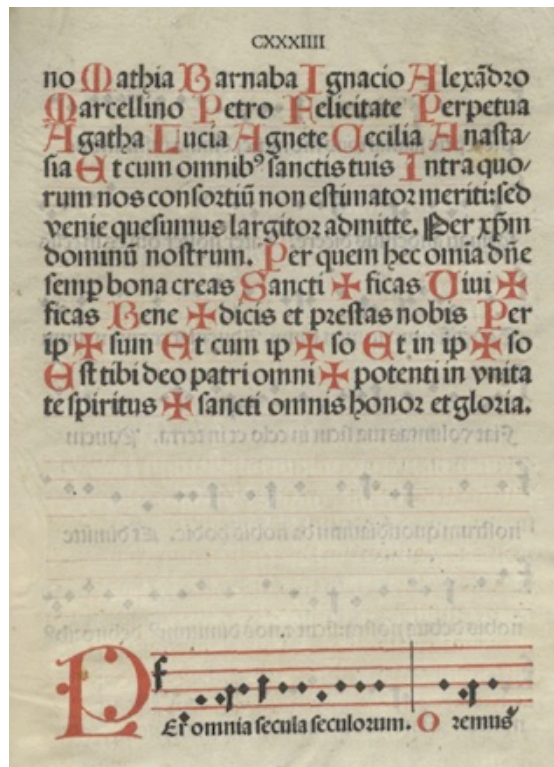 CXXXIIII
no Mathia Barnaba Ignacio Alexãdro
Marcellino Petro Felicitate Perpetua
Agatha Lucia Agnete Cecilia Anasta/
sia Et cum omnibꝰ sanctis tuis Intra quo/
rum nos consortiũ non estimator meriti: sed
venie quesumus largitor admitte. Per xp̃m
dominũ nostrum. Per quem hec omĩa dñe
semp bona creas Sancti ✠ ficas Uiui ✠
ficas Bene ✠ dicis et prestas nobis Per
ip ✠ sum Et cum ip ✠ so Et in ip ✠ so
Est tibi deo patri omni ✠ potenti in vnita
te spiritus ✠ sancti omnis honor et gloria.
PEr omnia secula seculorum. Oremus